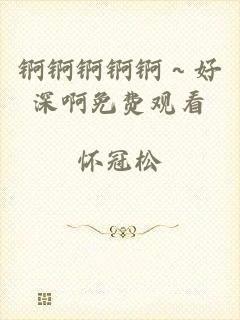 锕锕锕锕锕～好
深啊免费观看
怀冠松